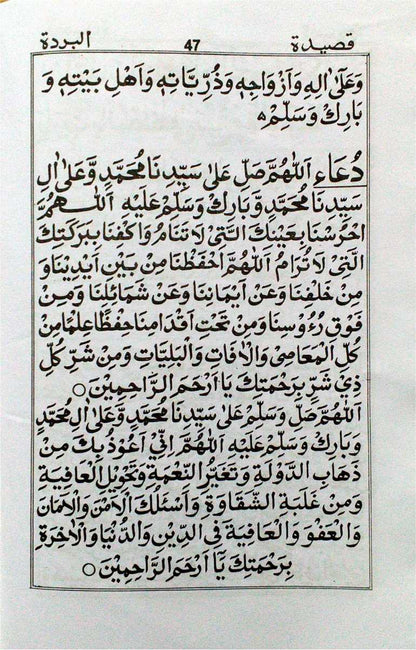 قصيدة 47 البردة
وَعَلٰى اٰلِهٖ وَاَزْوَاجِهٖ وَذُرِّيَّاتِهٖ وَاَهْلِ بَيْتِهٖ وَ
بَارِكْ وَسَلِّمْ ه
دُعَاء اَللّٰهُمَّ صَلِّ عَلٰى سَيِّدِنَا مُحَمَّدٍ وَّعَلٰى اٰلِ
سَيِّدِنَا مُحَمَّدٍ وَّبَارِكْ وَسَلِّمْ عَلَيْهِ اَللّٰهُمَّ
احْرُسْنَا بِعَيْنِكَ الَّتِىْ لَا تَنَامُ وَاكْفِنَا بِبَرَكَتِكَ
الَّتِىْ لَا تُرَامُ اَللّٰهُمَّ احْفَظْنَا مِنْ بَيْنِ اَيْدِيْنَا وَ
مِنْ خَلْفِنَا وَعَنْ اَيْمَانِنَا وَعَنْ شَمَائِلِنَا وَمِنْ
فَوْقِ رُءُوْسِنَا وَمِنْ تَحْتِ اَقْدَامِنَا حِفْظًا عِلْمًا مِنْ
كُلِّ الْمَعَاصِىْ وَالْاٰفَاتِ وَالْبَلِيَّاتِ وَمِنْ شَرِّ كُلِّ
ذِىْ شَرٍّ بِرَحْمَتِكَ يَا اَرْحَمَ الرَّاحِمِيْنَ ○
اَللّٰهُمَّ صَلِّ وَسَلِّمْ عَلٰى سَيِّدِنَا مُحَمَّدٍ وَّعَلٰى اٰلِ مُحَمَّدٍ
وَّبَارِكْ وَسَلِّمْ عَلَيْهِ اَللّٰهُمَّ اِنِّىْ اَعُوْذُ بِكَ مِنْ
ذَهَابِ الدَّوْلَةِ وَتَغَيُّرِ النِّعْمَةِ وَتَحْوِيْلِ الْعَافِيَةِ
وَمِنْ غَلَبَةِ الشَّقَاوَةِ وَاَسْئَلُكَ الْاَمْنَ وَالْاَمَانَ
وَالْعَفْوَ وَالْعَافِيَةَ فِى الدِّيْنِ وَالدُّنْيَا وَالْاٰخِرَةِ
بِرَحْمَتِكَ يَآ اَرْحَمَ الرَّاحِمِيْنَ ○